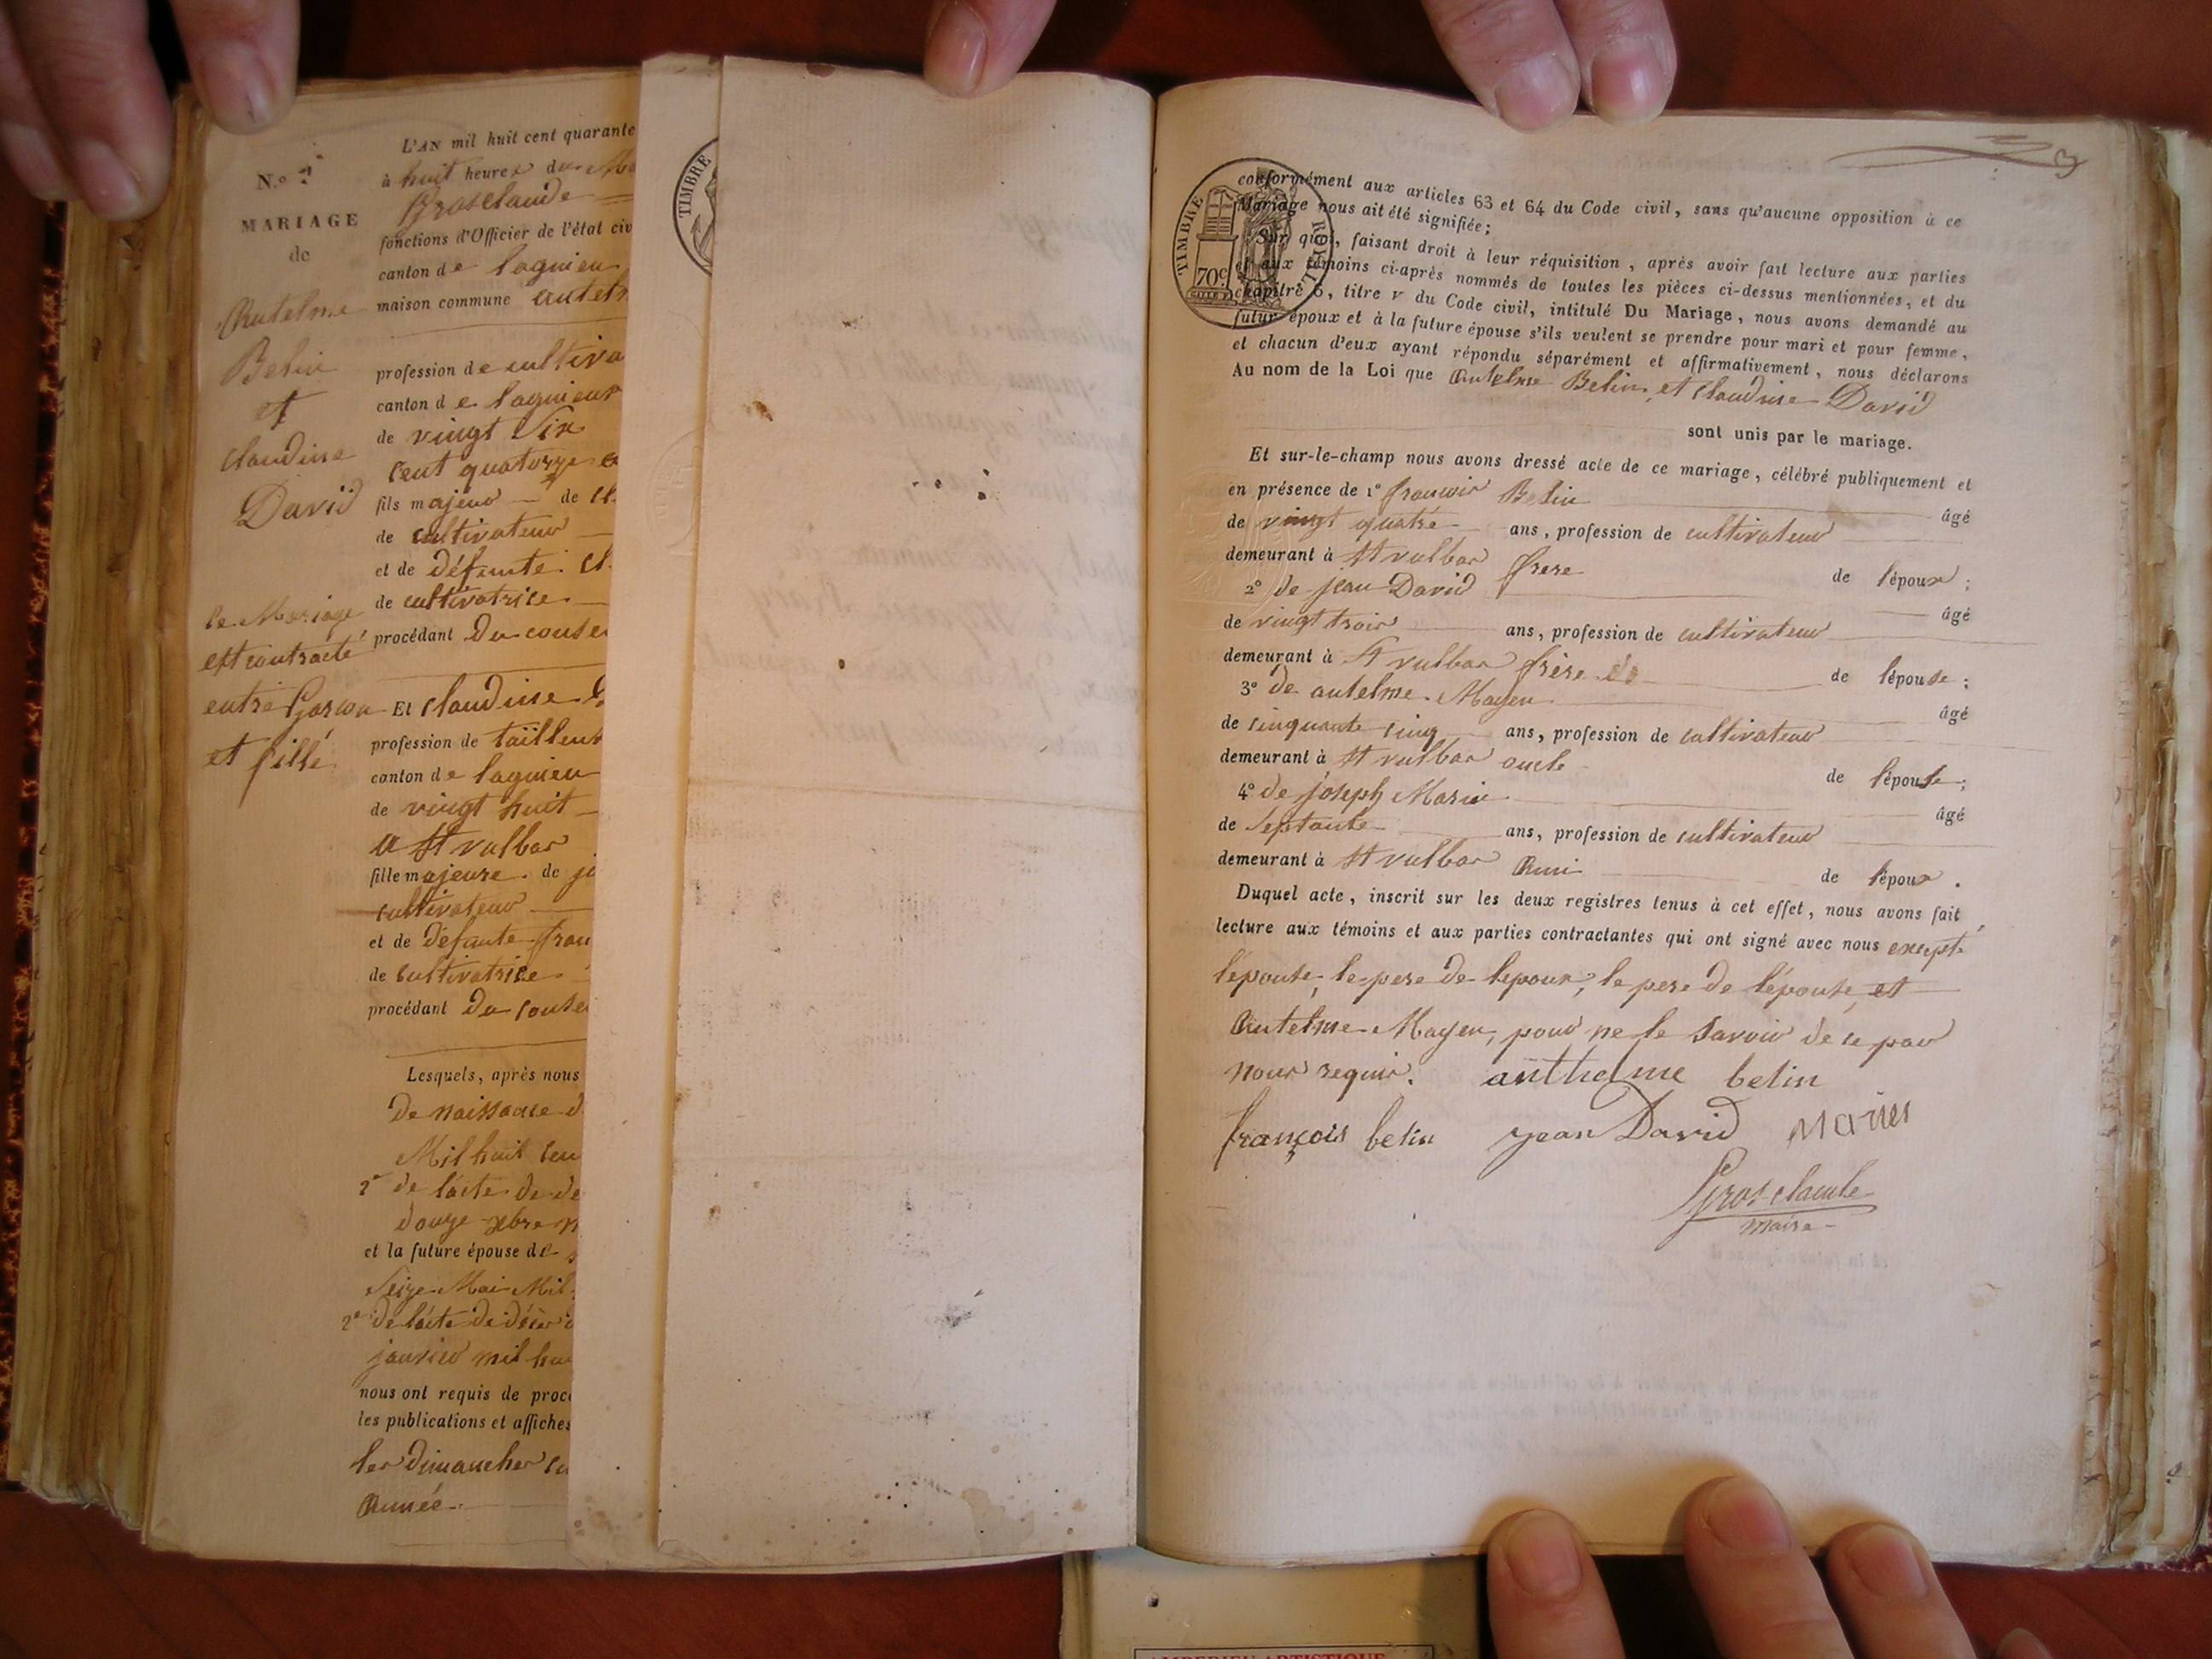 N.o
MARIAGE
de
Antelme
Belin
et
Claudine
David
le Mariage
est contracté
entre Garson
et fille
L'AN mil huit cent quarante
à huit heures du
Grosclaude
fonctions d'Officier de l'état civ
canton de lagnieu
maison commune
profession de cultiva
canton de lagnieu
de vingt six
cent quatorze
fils majeur de
de cultivateur
et de défunte
de cultivatrice
procédant du conse
Et Claudine
profession de tailleur
canton de lagnieu
de vingt huit
a St vulbas
fille majeure de
cultivateur
et de défunte fran
de cultivatrice
procédant du conse
Lesquels, après nous
de naissance d
Mil huit cen
2e de l'acte de dé
douze xbre
et la future épouse de
Seize Mai Mil
2e de l'acte de décès
janvier mil hu
nous ont requis de procé
les publications et affiches
les dimanches
Année
TIMBRE
TIMBRE ROYAL
70c
conformément aux articles 63 et 64 du Code civil, sans qu'aucune opposition à ce
Mariage nous ait été signifiée;
Sur quoi, faisant droit à leur réquisition, après avoir fait lecture aux parties
et aux témoins ci-après nommés de toutes les pièces ci-dessus mentionnées, et du
chapitre 6, titre v du Code civil, intitulé Du Mariage, nous avons demandé au
futur époux et à la future épouse s'ils veulent se prendre pour mari et pour femme,
et chacun d'eux ayant répondu séparément et affirmativement, nous déclarons
Au nom de la Loi que Antelme Belin et Claudine David
sont unis par le mariage.
Et sur-le-champ nous avons dressé acte de ce mariage, célébré publiquement et
en présence de 1° françois Belin âgé
de vingt quatre ans, profession de cultivateur
demeurant à St vulbas frere de l'époux;
2° de jean David âgé
de vingt trois ans, profession de cultivateur
demeurant à St vulbas frère de l'épouse;
3° de antelme Mayen âgé
de cinquante cinq ans, profession de cultivateur
demeurant à St vulbas oncle de l'épouse;
4° de joseph Marin âgé
de septante ans, profession de cultivateur
demeurant à St vulbas Ami de l'époux.
Duquel acte, inscrit sur les deux registres tenus à cet effet, nous avons fait
lecture aux témoins et aux parties contractantes qui ont signé avec nous excepté
l'épouse, le pere de l'epoux, le pere de l'épouse et
Antelme Mayen, pour ne le savoir de ce par
nous requis. anthelme belin
françois belin jean David Marin
Grosclaude
maire
AMBERIEU ARTISTIQUE